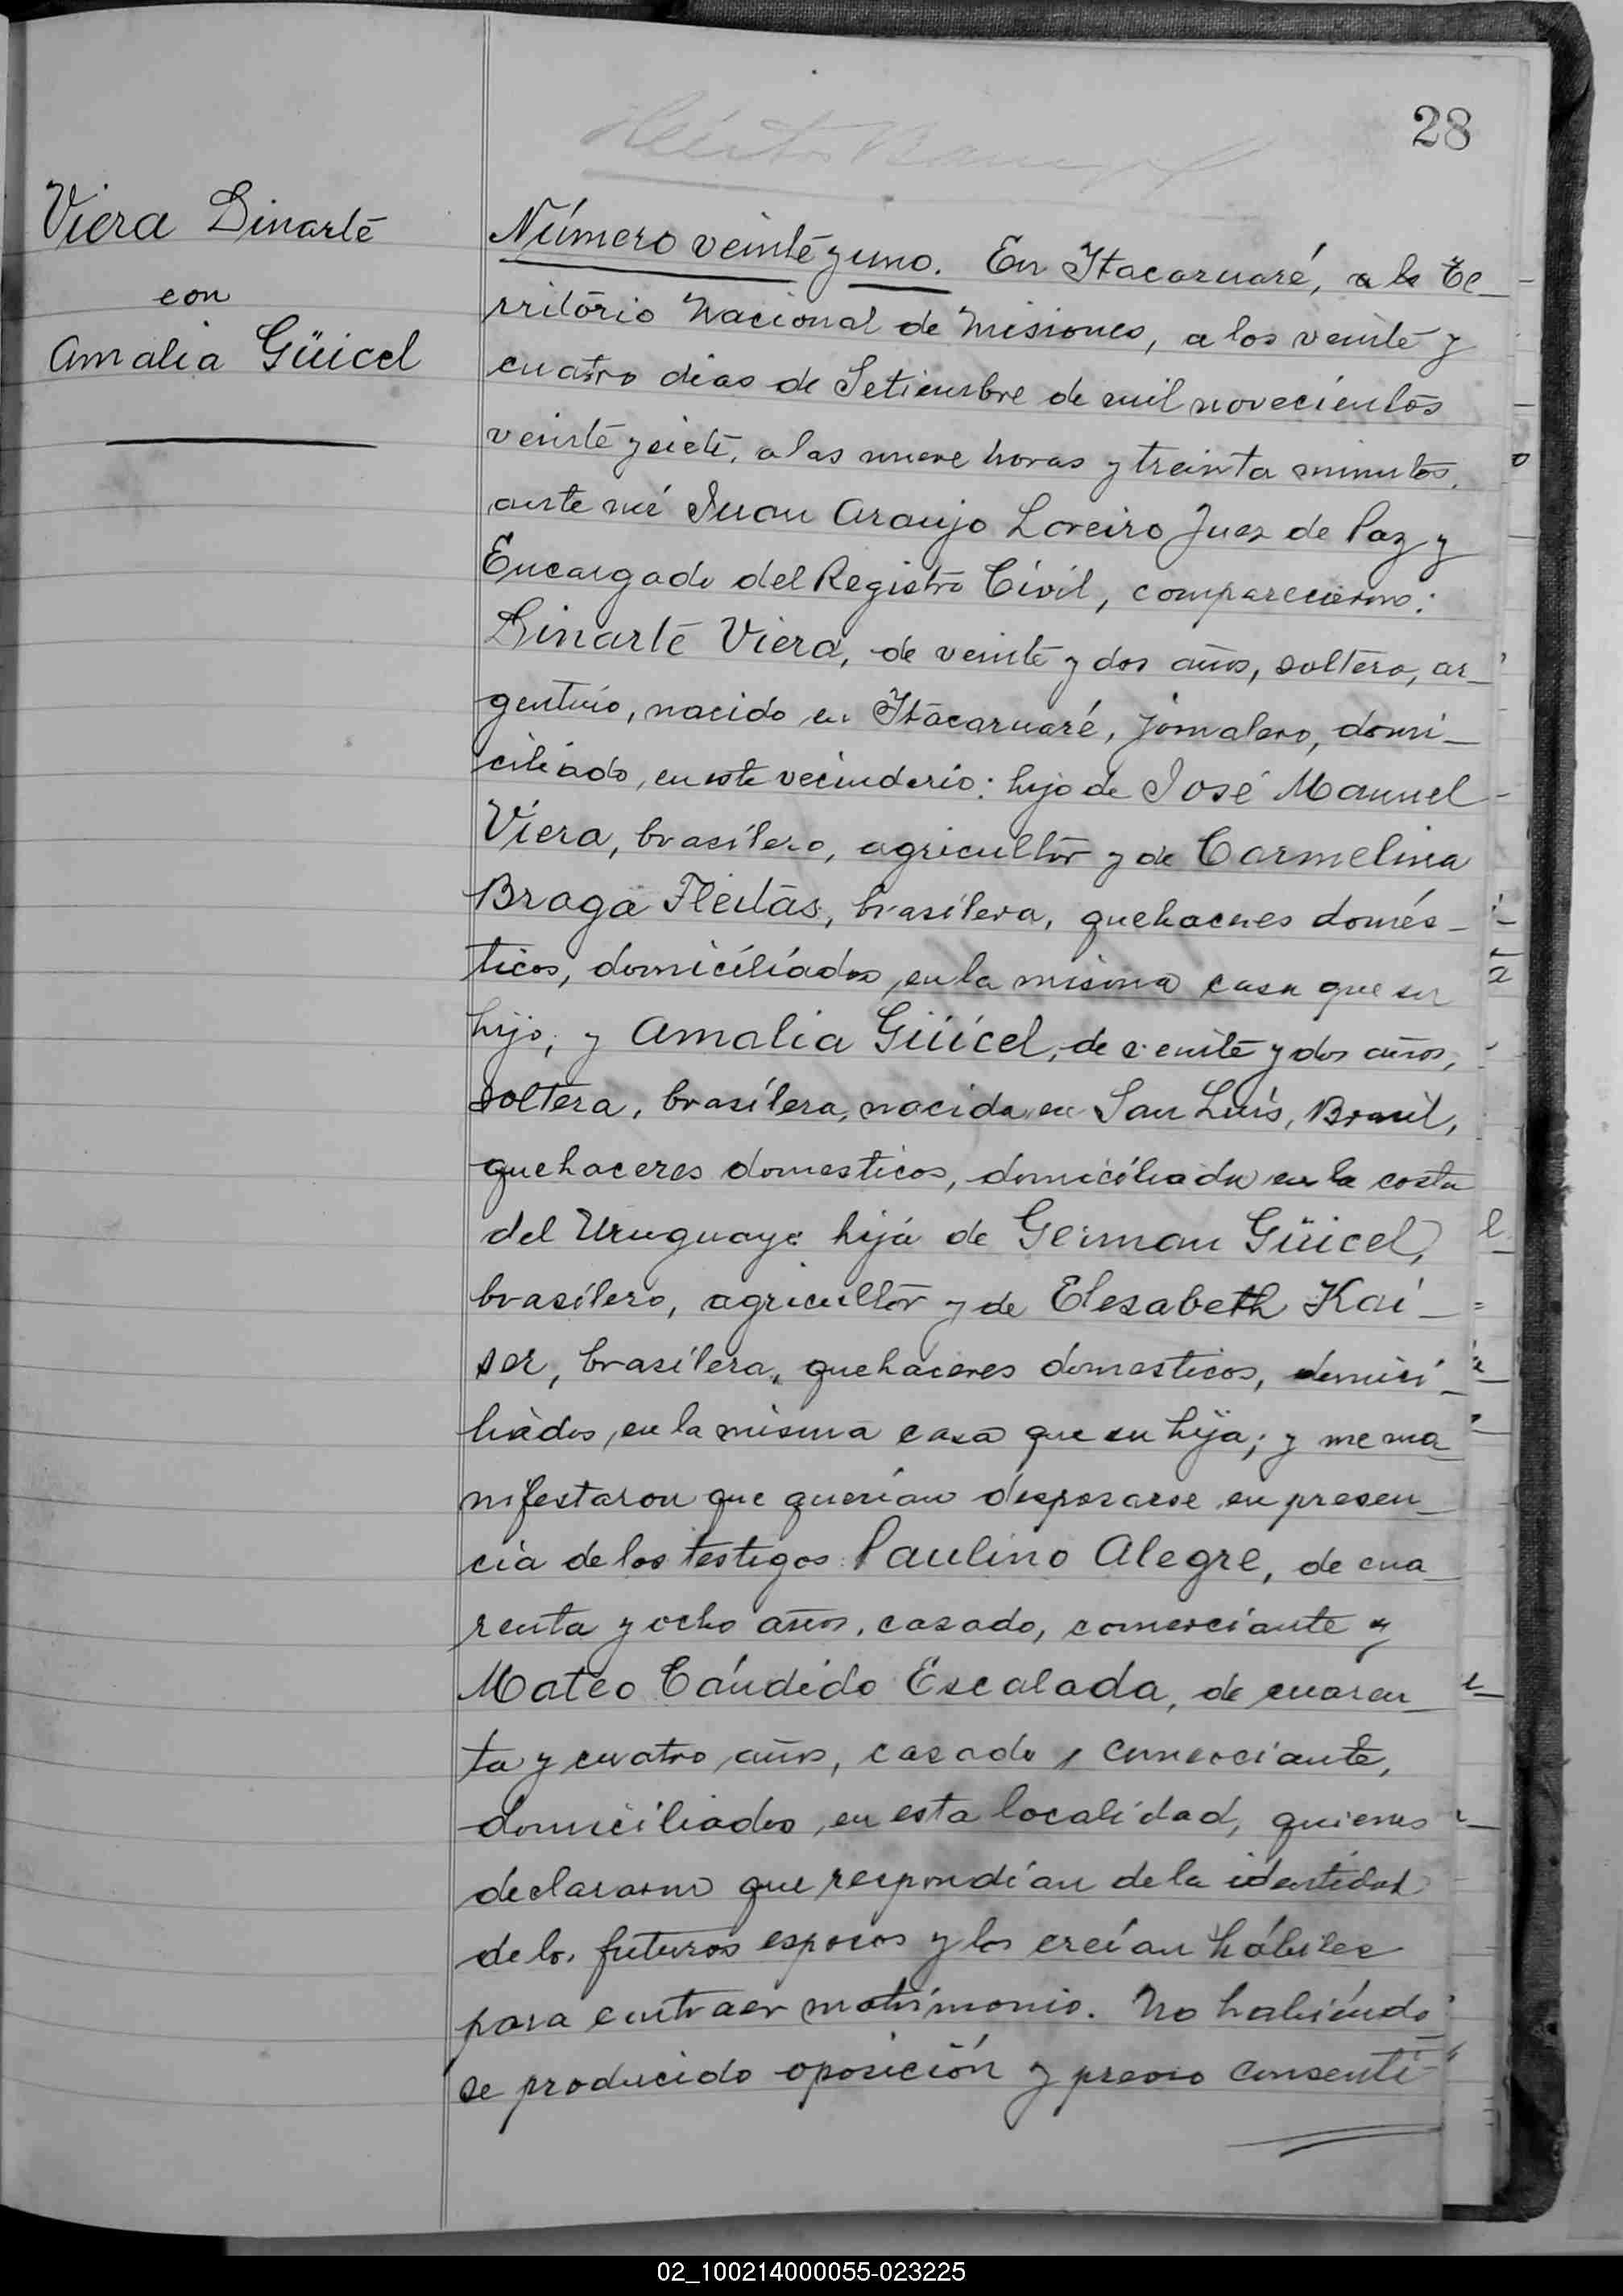 28
Viera Dinarte
con
Amalia Güicel
Número veinte y uno. En Itacaruaré, a la Te-
rritorio Nacional de Misiones, a los veinte y
cuatro dias de Setiembre de mil novecientos
veinte y siete, a las nueve horas y treinta minutos,
ante mí Juan Araujo Loreiro Juez de Paz y
Encargado del Registro Civil, comparecieron:
Dinarte Viera, de veinte y dos años, soltero, ar-
gentino, nacido en Itacaruaré, jornalero, domi-
ciliado, en este vecindario: hijo de José Manuel
Viera, brasilero, agricultor y de Carmelina
Braga Fleitas, brasilera, quehaceres domés-
ticos, domiciliados, en la misma casa que su
hijo; y Amalia Güicel, de veinte y dos años,
soltera, brasilera, nacida en San Luis, Brasil,
quehaceres domesticos, domiciliada en la costa
del Uruguay: hija de German Güicel,
brasilero, agricultor y de Elesabeth Kai-
ser, brasilera, quehaceres domesticos, domici-
liados, en la misma casa que su hija; y me ma-
nifestaron que querian desposarse en presen-
cia de los testigos: Paulino Alegre, de cua-
renta y ocho años, casado, comerciante y
Mateo Cándido Escalada, de cuaren-
ta y cuatro años, casado, comerciante,
domiciliados, en esta localidad, quienes
declararon que respondían de la identidad
de los futuros esposos y los creían hábiles
para contraer matrimonio. No habiéndo
se producido oposición y previo consenti-
02_100214000055-023225